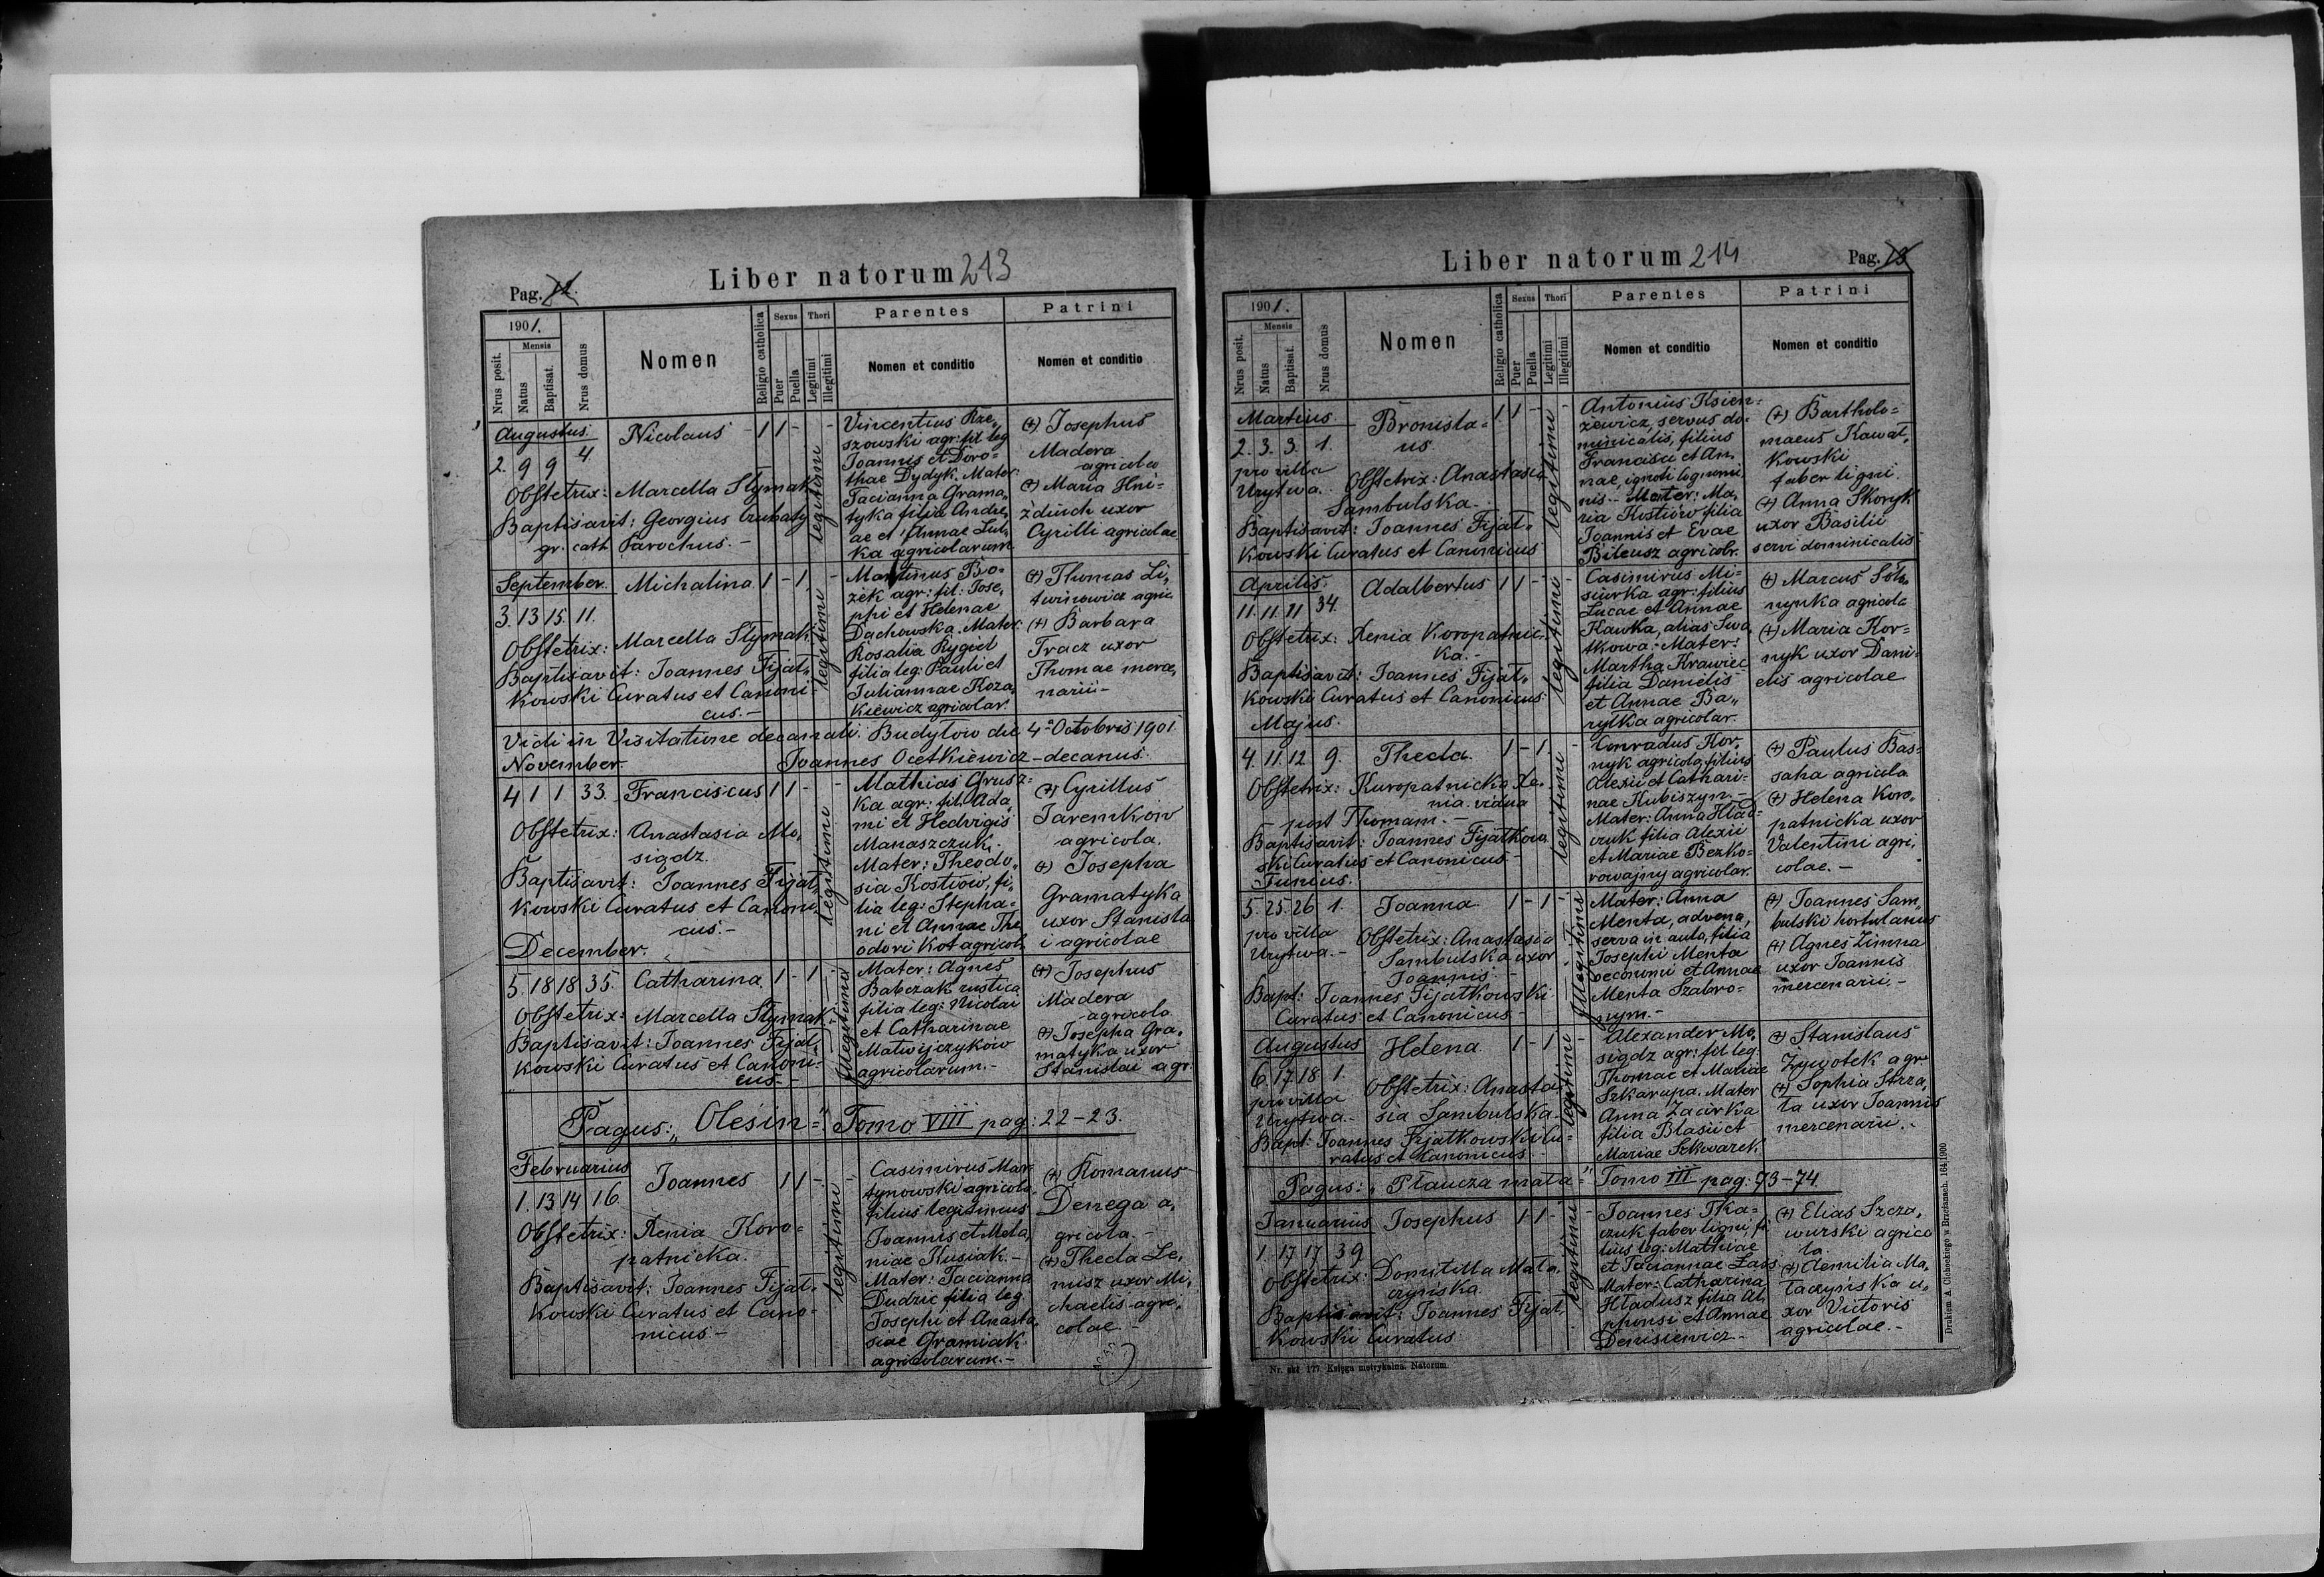 Pag.
Liber natorum 213
1901.
Nrus posit.
Mensis
Natus
Baptisat.
Nrus domus
Nomen
Religio catholica
Sexus
Puer
Puella
Thori
Legitimi
Illegitimi
Parentes
Nomen et conditio
Patrini
Nomen et conditio
Augustus
2. 9 9 4.
Nicolaus - 1 1 - -
Obstetrix: Marcella Slymak
Baptisavit: Georgius Czubaty
gr. cath Parochus. -
legitimi
Vincentius Rze„
szowski agr: fil leg
Joannis et Doro=
thae Dydyk. Mater:
Tacianna Grama„
tyka filia Andre„
ae et Annae Lut„
ka agricolarum
(+) Josephus
Madera
agricola
(+) Maria Hni=
zdiuch uxor
Cyrilli agricolae
September.
3. 13 15. 11.
Michalina 1 - 1 -
Obstetrix: Marcella Slymak
Baptisavit: Joannes Fijał„
kowski Curatus et Canoni
cus. -
legitimi
Martinus Bo=
zek agr: fil: Jose„
phi et Helenae
Dachowska. Mater:
Rosalia Rygiel
filia leg: Pauli et
Juliannae Koza„
kiewicz agricolar.
(+) Thomas Li„
twinowicz agric
(+) Barbara
Tracz uxor
Thomae merce„
narii -
Vidi in Visitatione decanali. Budyłow die 4ª Octobris 1901
November. Joannes Ocetkiewicz - decanus.
4 1 1 33. Franciscus 1 1 - -
Obstetrix: Anastasia Mo„
sigdz.
Baptisavit: Joannes Fijał„
kowski Curatus et Canoni
cus. -
legitimi
Mathias Grusz=
ka agr: fil. Ada„
mi et Hedvigis
Manaszczuk.
Mater: Theodo„
sia Kostiow, fi„
lia leg: Stepha=
ni et Annae The
odori Kot agricol.
(+) Cyrillus
Jaremkow
agricola.
(+) Josepha
Gramatyka
uxor Stanisla
i agricolae
December.
5. 18 18 35. Catharina 1 - 1 -
Obstetrix: Marcella Slymak
Baptisavit: Joannes Fijał„
kowski Curatus et Canoni=
cus. -
Illegitima
Mater: Agnes
Babczak rustica
filia leg: Nicolai
et Catharinae
Matwijczyków
agricolarum. -
(+) Josephus
Madera
agricola
(+) Josepha Gra„
matyka uxor
Stanislai agr:
Pagus: „Olesin" = Tomo VIII pag: 22-23.
Februarius
1. 13 14 16. Joannes 1 1 - -
Obstetrix: Xenia Koro=
patnicka.
Baptisavit: Joannes Fijał„
kowski Curatus et Cano=
nicus -
legitimi
Casimirus Mar
tynowski agricola,
filius legitimus
Joannis et Mela„
niae Kusiak -
Mater: Tacianna
Dudzic filia leg
Josephi et Anasta„
siae Gramiak
agricolarum. -
(+) Romanus
Denega a„
gricola. -
(+) Thecla Le„
misz uxor Mi„
chaelis agri„
colae -
Liber natorum 214
Pag.
1901.
Nrus posit.
Mensis
Natus
Baptisat.
Nrus domus
Nomen
Religio catholica
Sexus
Puer
Puella
Thori
Legitimi
Illegitimi
Parentes
Nomen et conditio
Patrini
Nomen et conditio
Martius
2. 3. 3. 1.
pro villa
Urytwa.
Bronisla=
us 1 1 - -
Obstetrix: Anastasia
Sambulska.
Baptisavit: Joannes Fijał„
kowski Curatus et Canonicus
legitimi
Antonius Ksien=
żewicz, servus do=
minicalis, filius
Francisci et An„
nae, ignoti cognomi
nis. - Mater: Ma„
ria Kostiow filia
Joannis et Evae
Bileusz agricolr.
(+) Bartholo=
maeus Kawał„
kowski
faber ligni.
(+) Anna Skoryk
uxor Basilii
servi dominicalis
Aprilis.
11. 11. 21 34. Adalbertus 1 1 - -
Obstetrix: Xenia Koropatnic
ka. -
Baptisavit: Joannes Fijał„
kowski Curatus et Canonicus.
legitimi
Casimirus Mi=
siurka agr: filius
Lucae et Annae
Kawka, alias Swa„
tkowa. Mater:
Martha Krawiec
filia Danielis
et Annae Ba„
rylka agricolar.
(+) Marcus Soło„
nynka agricola
(+) Maria Kor=
nyk uxor Dani=
elis agricolae
Majus.
4. 11. 12 9. Thecla. 1 - 1 -
Obstetrix: Kuropatnicka Xe„
nia vidua
post Thomam. -
Baptisavit: Joannes Fijałkow
ski Curatus et Canonicus -
legitimi
Conradus Kor„
nyk agricola, filius
Alexii et Cathari=
nae Kubiszyn. -
Mater: Anna Hład=
czuk filia Alexii
et Mariae Bezko=
rowajny agricolar.
(+) Paulus Bas=
saha agricola
(+) Helena Koro„
patnicka uxor
Valentini agri„
colae. -
Junius.
5. 25. 26 1. Joanna 1 - 1 -
pro villa
Urytwa. -
Obstetrix: Anastasia
Sambulska uxor
Joannis. -
Bapt: Joannes Fijałkowski
Curatus et Canonicus -
Illegitimi
Mater: Anna
Menta, advena,
serva in aula, filia
Josephi Menta
oeconomi et Annae
Menta Szabro=
nym. -
(+) Joannes Sam„
bulski hortulanus
(+) Agnes Zimna
uxor Joannis
mercenarii. -
Augustus
6. 17. 18. 1. Helena 1 - 1 -
pro villa
Urytwa. -
Obstetrix: Anasta
sia Sambulska.
Bapt: Joannes Fijałkowski Cu=
ratus et Canonicus. -
legitimi
Alexander Mo„
sigdz agr: fil leg:
Thomae et Mariae
Szkarupa. Mater
Anna Zacirka
filia Blasii et
Mariae Szkwarek
(+) Stanislaus
Żywotek agr:
(+) Sophia Strza„
ła uxor Joannis
mercenarii.
Pagus: „Płaucza mała" = Tomo III pag: 73-74.
Januarius
1. 17 17 39 Josephus 1 1 - -
Obstetrix: Domitilla Mała„
czyńska.
Baptisavit: Joannes Fijał„
kowski Curatus.
legitimi
Joannes Tka=
czuk faber ligni, fi
lius leg: Mathiae
et Taciannae Lass
Mater: Catharina
Hładusz filia Al
phonsi et Annae
Denisiewicz -
(+) Elias Szcza„
wurski agrico
la
(+) Aemilia Ma„
łaczyńska u„
xor Victoris
agricolae. -
Nr. skł. 177. Księga metrykalna. Natorum.
Drukiem A. Cichockiego w Brzeżanach. 164/1900